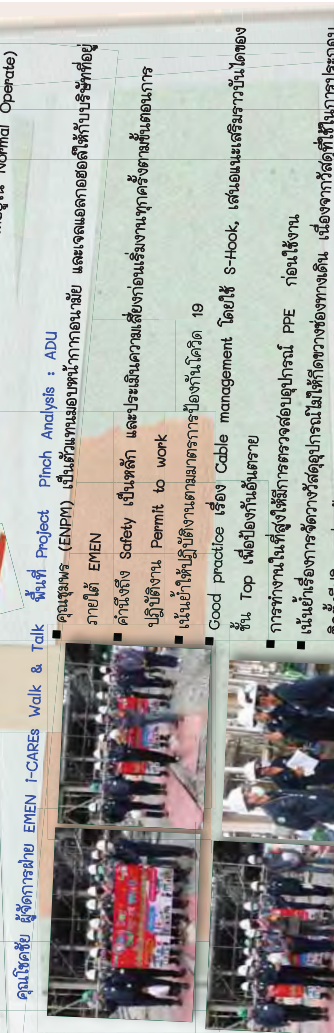 Normal Operate)
คุณโชคชัย ผู้จัดการฝ่าย EMEN i-CAREs Walk & Talk พื้นที่ Project Pinch Analysis : ADU
■ คุณชุมพร (ENPM) เป็นตัวแทนมอบหน้ากากอนามัย และเจลแอลกอฮอล์ให้กับบริษัทที่อยู่
ภายใต้ EMEN
■ คำนึงถึง Safety เป็นหลัก และประเมินความเสี่ยงก่อนเริ่มงานทุกครั้งตามขั้นตอนการ
ปฏิบัติงาน Permit to work
■ เน้นย้ำให้ปฏิบัติงานตามมาตรการป้องกันโควิด 19
■ Good practice เรื่อง Cable management โดยใช้ S-Hook, เสนอแนะเสริมราวบันไดของ
ชั้น Top เพื่อป้องกันอันตราย
■ การทำงานในที่สูงให้มีการตรวจสอบอุปกรณ์ PPE ก่อนใช้งาน
■ เน้นย้ำเรื่องการจัดวางวัสดุอุปกรณ์ไม่ให้กีดขวางช่องทางเดิน เนื่องจากวัสดุที่ใช้ในการประกอบ